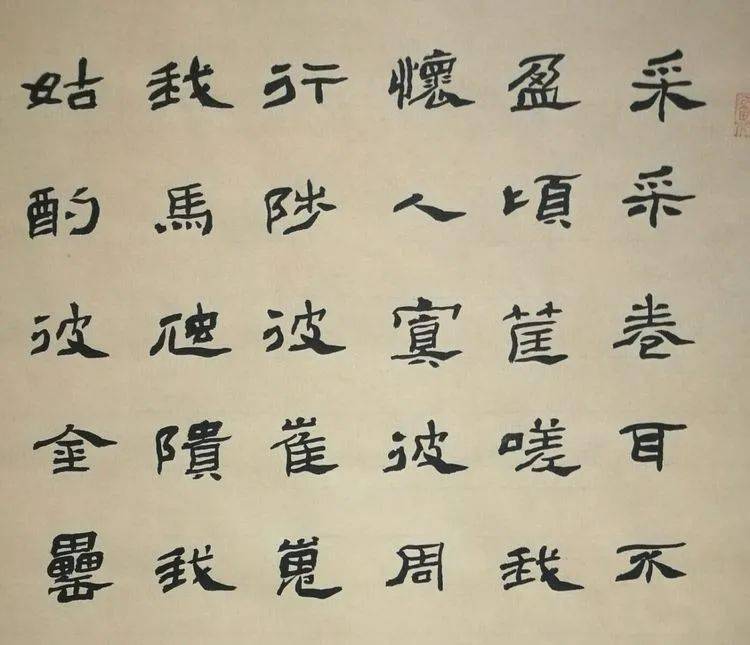 采采卷耳不
盈頃筐嗟我
懷人寘彼周
行陟彼崔嵬
我馬虺隤我
姑酌彼金罍